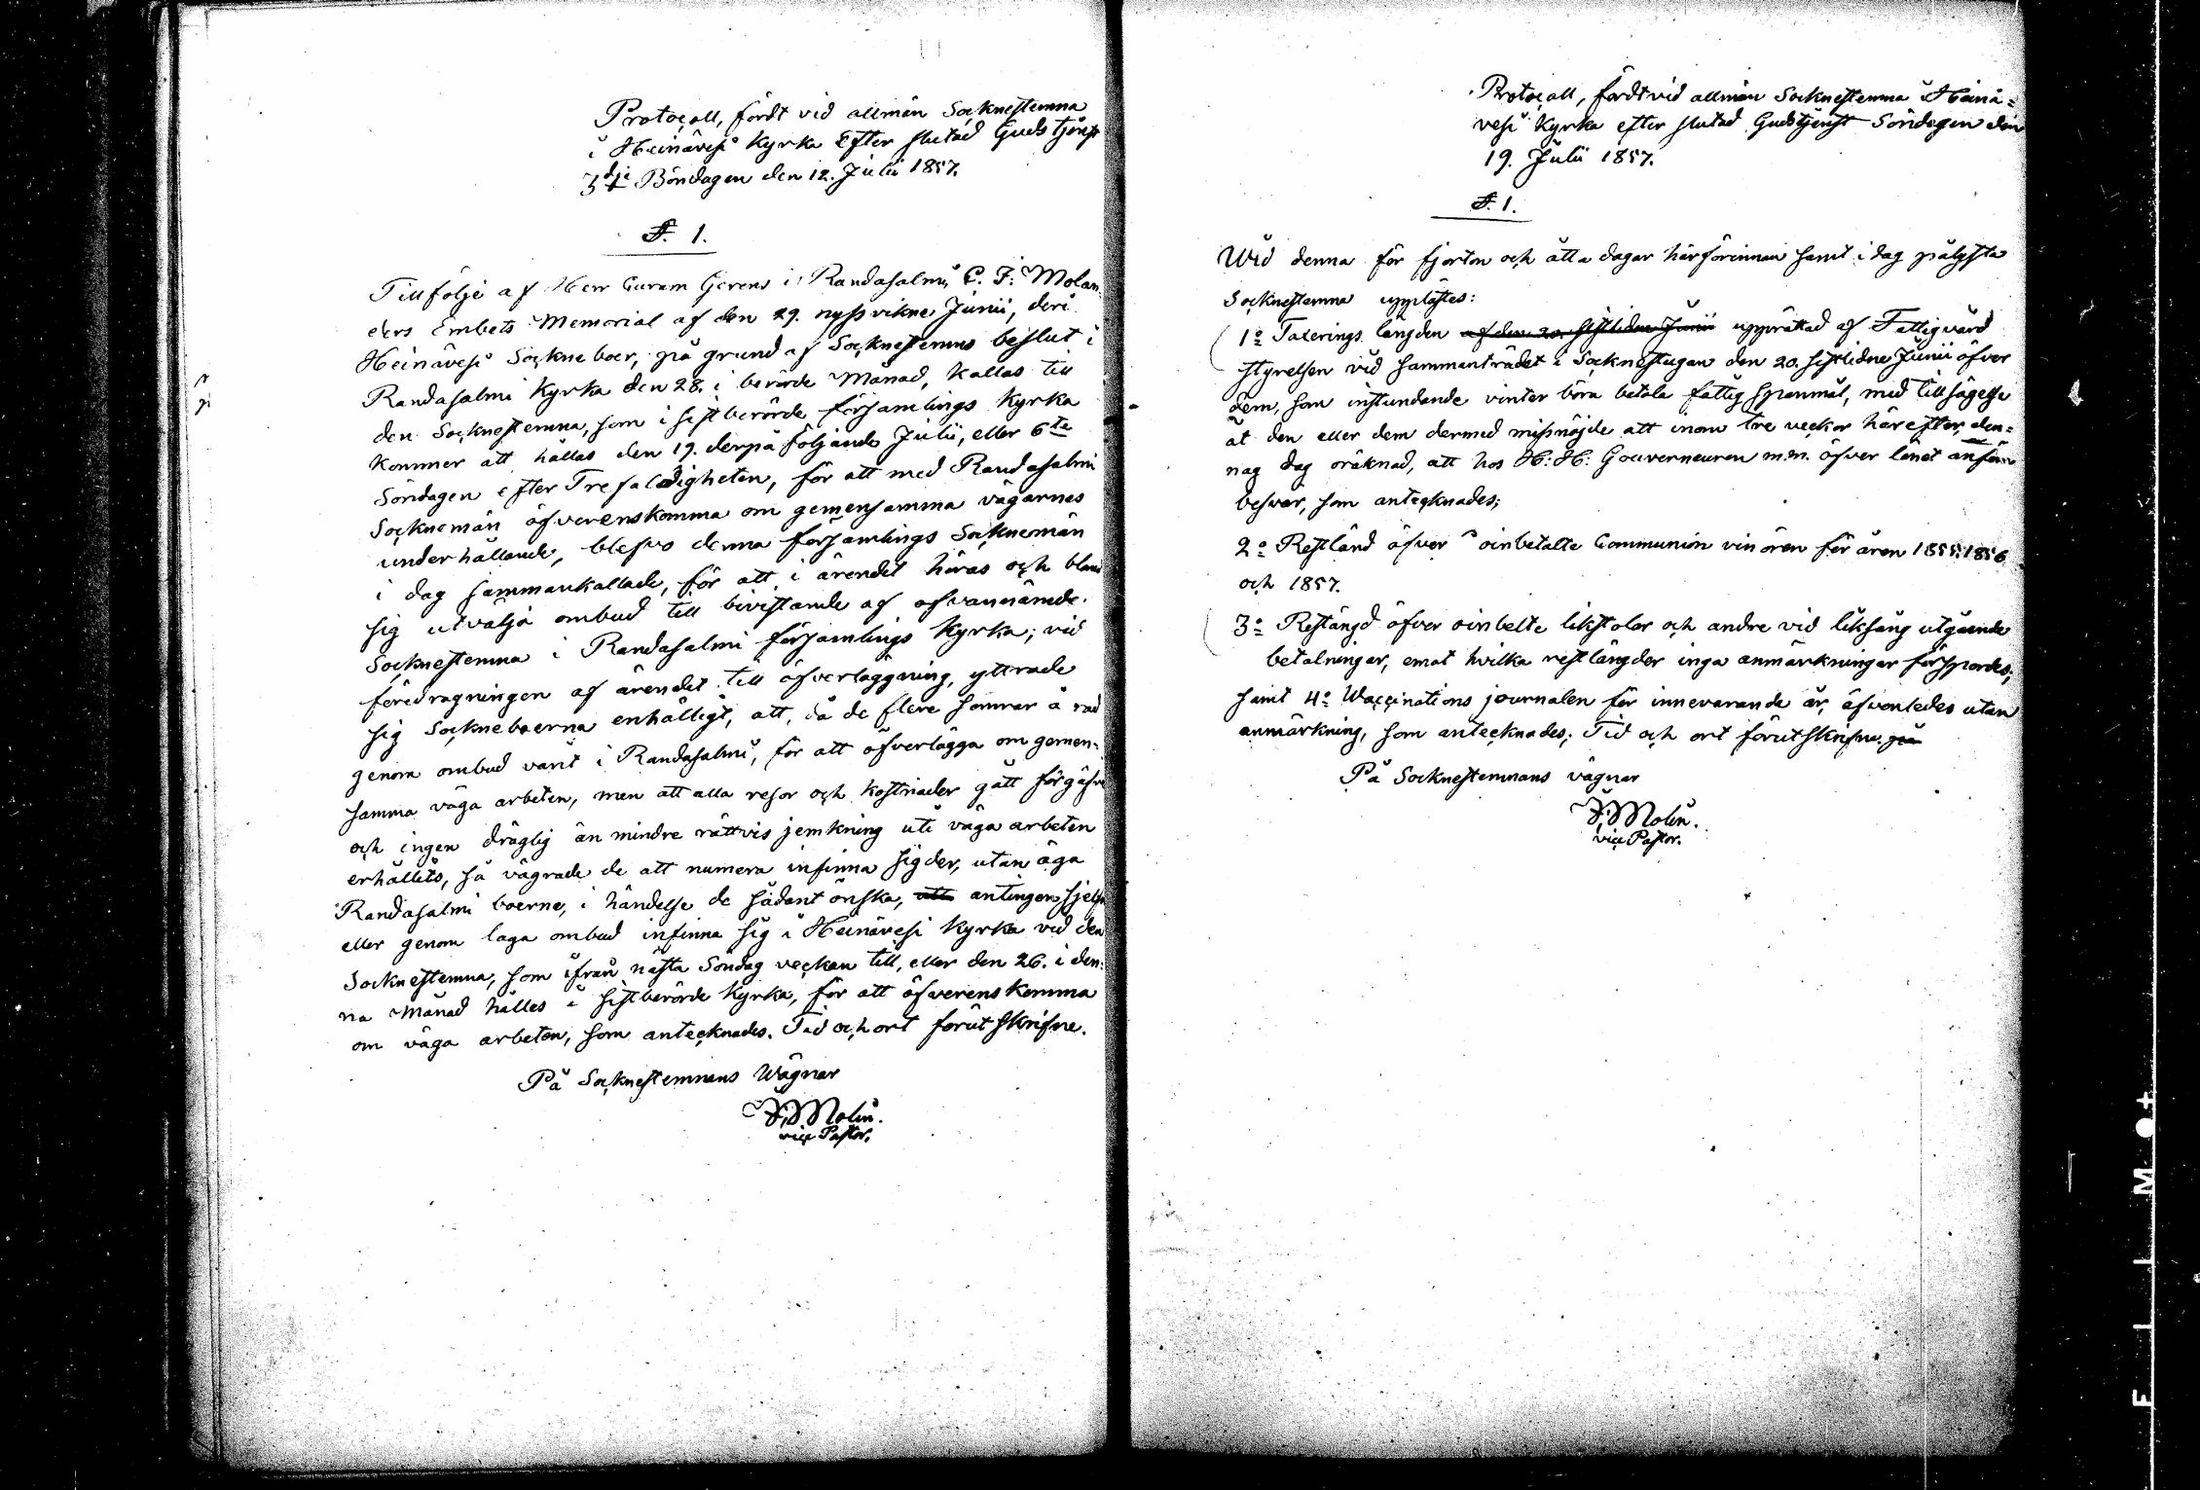 Protocoll, fördt vid allmän Socknestemna
i Heinävesi Kyrka Efter slutad Gudstjenst
3dje Böndagen den 12. Julii 1857.
§. 1.
Till följe af Herr Curam Gerens i Randasalmi, C. F. Molan-
ders Embets Memorial af den 29. nyssvikne Junii, deri
Heinävesi Sockne boer, på grund af Socknestemns beslut i
Randasalmi Kyrka den 28. i berörde Månad, kallas till
den Socknestemna, som i sistberörde församlings Kyrka
kommer att hållas den 19. derpå följande Julii, eller 6te
Söndagen efter Trefaldigheten, för att med Randasalmi
Socknemän öfverenskomma om gemensamma vägarnes
underhållande, blefvo denna församlings Socknemän
i dag sammankallade, för att i ärendet höras och bland
sig utvälja ombud till bivistande af ofvannämde
Socknestemna i Randasalmi församlings Kyrka; vid
föredragningen af ärendet till öfverläggning, yttrade
sig Sockneboerna enhälligt, att, då de flere somrar å rad
genom ombud varit i Randasalmi, för att öfverlägga om gemen-
samma väga arbeten, men att alla resor och kostnader gått förgäfves
och ingen dräglig än mindre rättvis jemkning uti väga arbeten
erhållits, så vägrade de att numera infinna sig der, utan äga
Randasalmi boerne, i händelse de sådant önska, att antingen sjelfve
eller genom laga ombud infinna sig i Heinävesi Kyrka vid den
Socknestemna, som ifrån nästa Söndag veckan till, eller den 26. i den-
na Månad hålles i sistberörde Kyrka, för att öfverenskomma
om väga arbeten, som antecknades. Tid och ort förutskrifne.
På Socknestemnans Wägnar
J. Molin.
vice Pastor.
Protocoll, fördt vid allmän Socknestemna i Heinä-
vesi Kyrka efter slutad Gudstjenst Söndagen den
19. Julii 1857.
§. 1.
Wid denna för fjorton och åtta dagar härförinnan samt i dag pålysta
Socknestemna upplästes:
1o Taxerings längden af den 20. sistlidne Junii upprättad af Fattigvård
styrelsen vid sammanträdet i Socknestugan den 20. sistlidne Junii öfver
dem, som instundande vinter böra betala fattig spannmål, med tillsägelse
åt den eller dem dermed missnöjde att inom tre veckor härefter, den-
nag dag oräknad, att hos H: H: Gouverneuren m.m. öfver länet anföra
besvär, som antecknades;
2o Restländ öfver oinbetalte Communion vin ören för åren 1855. 1856
och 1857.
3o Restängd öfver oinbelte likstolar och andre vid liksång utgående
betalningar, emot hvilka restlängder inga anmärkningar försports;
samt 4o Waccinations journalen för innevarande år, äfvenledes utan
anmärkning, som antecknades; Tid och ort förutskrifne. på
På Socknestemnans vägnar
J. Molin.
vice Pastor.
FILM